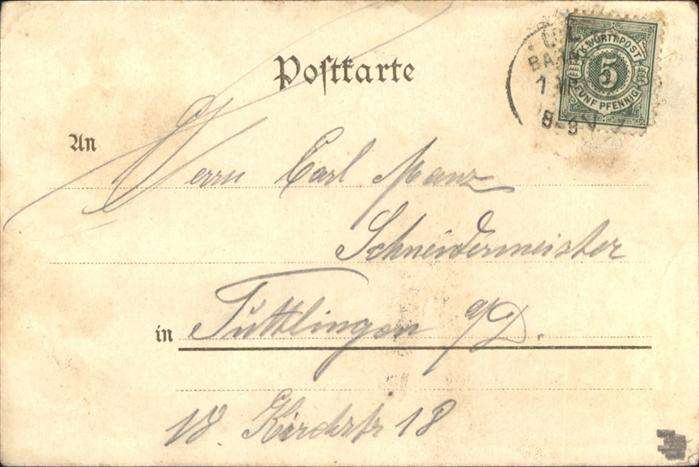 Postkarte
K. WÜRTT. POST
5
FÜNF PFENNIG
UL
BA
8-9
An Herrn Carl Manz
Schneidermeister
in Tuttlingen a/D.
Kirchstr 18